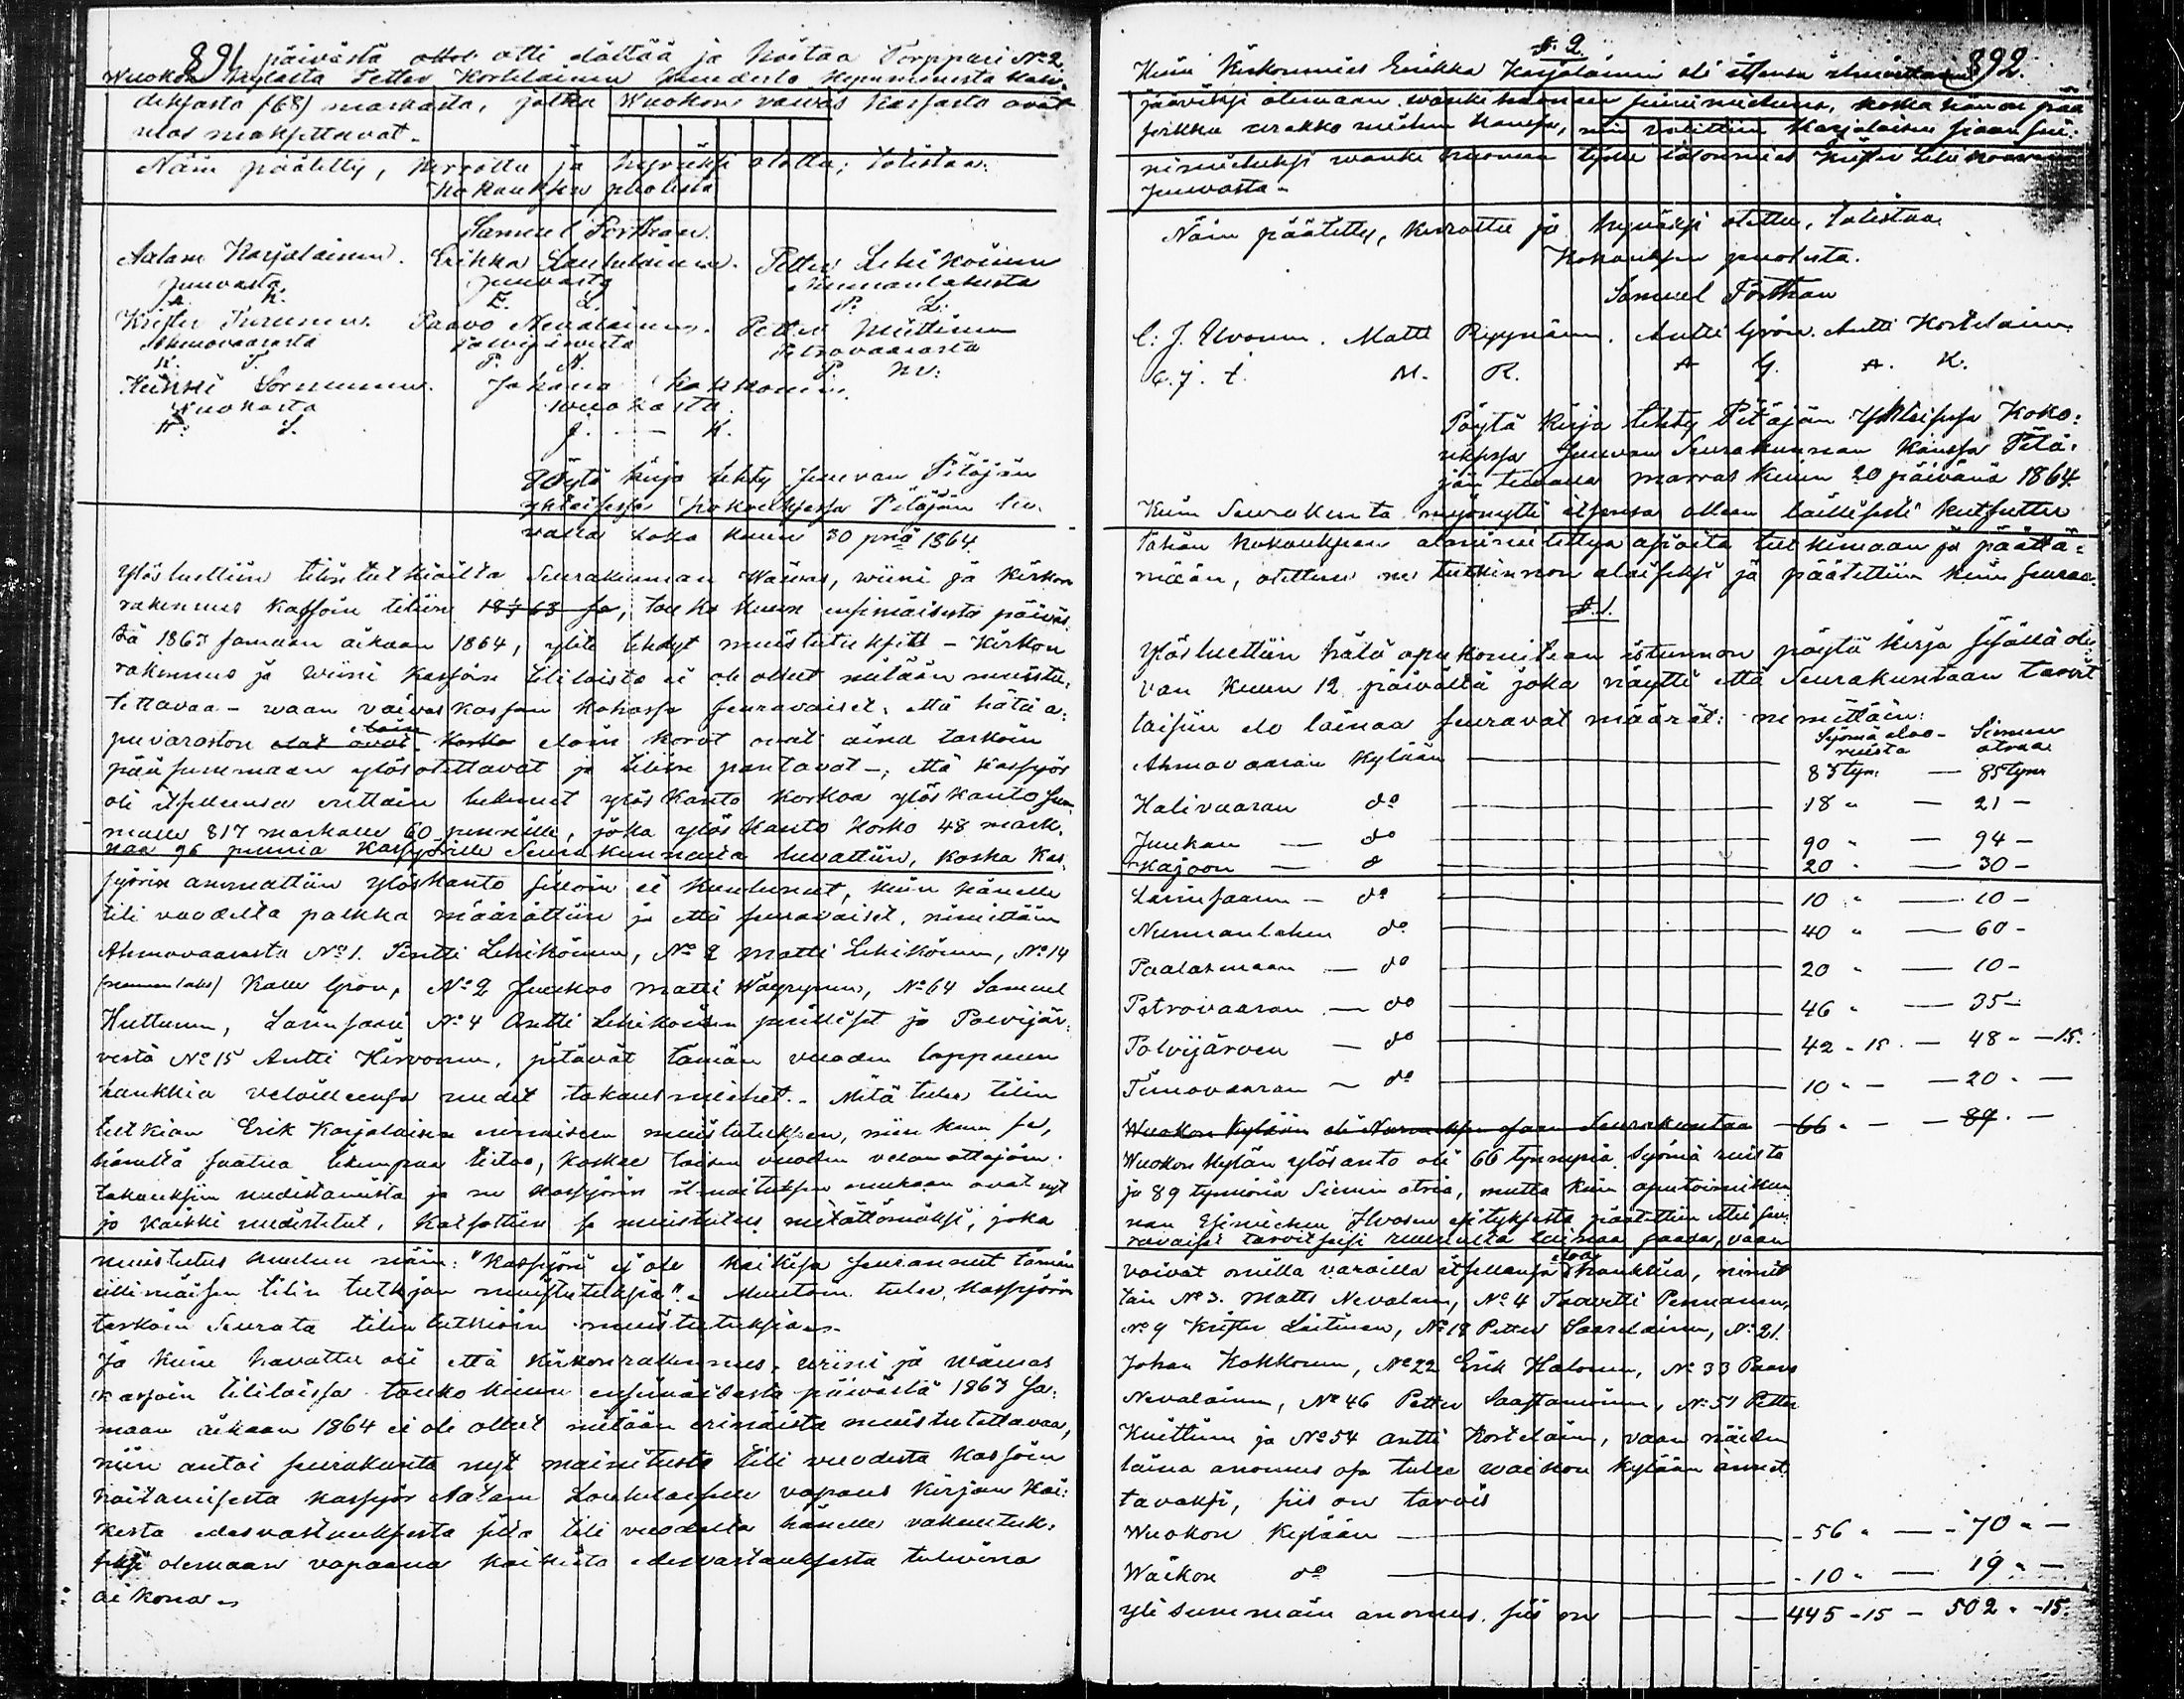 891
päivästä ottel. otti elättää ja hoitaa Torppari No 2
Wuokon kylästä Petter Kortelainen kuudesta kymmenestä kah-
deksasta (68) markasta, jotka Wuokon vaivas kassasta ovat
ulos maksettavat.
Näin päätetty, kerrottu ja hyväksi otettu; todistaa:
Kokouksen puolesta
Samuel Forthran.
Adam Karjalainen. Erikka Laukulainen. Petter Lehikoinen
Juuvasta Juuvasta Nunnanlahesta
A. K. E. L. P. L.
Krister Turunen. Paavo Nevalainen. Petter Miettinen
Ahmovaarasta Polvijärvestä Petrovaarasta
K. T. P. N. P. M.
Heikki Sormunen. Johana Kokkonen.
Wuokosta Wuokosta.
H. S. J. - K.
Pöytä kirja tehty Juuvan Pitäjän
yhteisessä kokouksessa Pitäjän tu-
valla Loka kuun 30 pnä 1864.
Ylösluettiin tilintutkioilta Seurakunnan Waivas, wiini ja Kirkon
rakennus kassoin tiliin 1863 ja, touko kuun ensimäisestä päiväs
tä 1863 samaan aikaan 1864, ylite tehdyt muistutukset - Kirkon
rakennus ja Wiini kassoin tililöistä ei ole ollut mitään muistu-
tettavaa - waan vaivas kassan kohassa seuraavaiset: että hätä a-
puvaraston olat ovat korko eloin korot ovat aina tarkoin
pääsummaan ylösotettavat ja tiliin pantavat -; että kassyör
oli itsellensä ottain laskenut ylös kanto korkoa ylöskanto sum
malle 817 markalle 60 pennille, joka ylös kanto korko 48 mark-
kaa 96 penniä kassyörille Seurakunnasta luvattiin, koska kas-
syörin ammattiin ylöskanto silloin ei kuulunut, kuin hänelle
tili vuodelta palkka määrättiin ja että seuraavaiset, nimittäin
Ahmovaarasta No 1. Pentti Lehikoinen, No 2 Matti Lehikoinen, No 14
(Nunnanlaks) Kalle Grön, No 2 Juukas Matti Wäyrynen, No 64 Samuel
Huttunen, Larinsaari No 4 Antti Lehikoisen perilliset ja Polvijär-
vestä No 15 Antti Hirvonen, pitävät tämän vuoden loppuun
hankkia veloillensa uudet takausmiehet. - Mitä tulee tilin
tutkian Erik Karjalaisen ennaiseen muistutukseen, niin kuin se,
häneltä saatua likempaa tietoa, koskee toisen vuoden velan ottajoin
takauksiin uudistamista ja ne kassyörin ilmoituksen mukaan ovat nyt
jo kaikki uudistetut, katsottiin se muistutus mitättömäksi, joka
muistutus kuuluu näin: "Kassyöri ei ole kaikissa seurannut tämän
eillimäisen tilin tutkian muistutuksia". - Muutoin tulee kassyörin
tarkoin seurata tilin tutkioin muistutuksia.
Ja kuin havattu oli että kirkonrakennus, wiini ja waivas
kassoin tililöissä touko kuun ensimäisestä päivästä 1863 sa-
maan aikaan 1864 ei ole ollut mitään erinäistä muistutettavaa,
niin antoi seurakunta nyt mainitusta tili vuodesta kassoin
hoitamisesta kassyör Adam Laukulaiselle vapaus kirjan kai-
kesta edesvastauksesta siltä tili vuodelta hänelle vakuutuk-
seksi olemaan vapaana kaikista edesvastauksesta tulevina
aikona.
892.
§. 2.
Kuin Kirkonmies Erikka Karjalainen oli itsensä ilmoittanut
jääviksi olemaan wankihuoneen siunimiehenä, koska hän on pää
niin valittiin Karjalaisen siaan
nimieheksi wanki huoneen työlle talonmies Krister Lehikoinen
Juuvasta.
Näin päätetty, kerrottu ja hyväksi otettu, todistaa.
Kokouksen puolesta.
Samuel Forthran
C. J. Ilvonen. Matti Ryynänen. Antti Grön. Antti Kortelainen
C. J. I. M. R. A G. A. K.
Pöytä kirja tehty Pitäjän Yhteisessä Koko-
uksessa Juuvan Seurakunnan kanssa Pitä-
jän tuvalla marras kuun 20 päivänä 1864.
Kuin Seurakunta myönnytti itsensä olleen laillisesti kutsuttu
tähän kokoukseen alanimitettyä asioita tutkimaan ja päättä-
mään, otettiin ne tutkinnon alaiseksi ja päätettiin kuin seuraa.
§. 1.
Ylösluettiin hätä apukomitean istunnon pöytä kirja sisällä ole-
van kuun 12 päivältä joka näytti että Seurakuntaan tarvit
taisiin elo lainaa seuraavat määrät: nimittäin:
Syömä elo- Siemen
ruista otraa
Ahmovaaran kylään 85 tyn. - 85 tyn
Halivaaran do 18 " - 21 -
Juukan - do 90 " - 94 -
Kajoon - d 20 " - 30 -
Larinsaaren - do 10 " - 10 -
Nunnanlahen do 40 " - 60 -
Paalasmaan - do 20 " - 10 -
Petrovaaran - do 46 " - 35 -
Polvijärven - do 42 - 15 - 48 " - 15.
Timovaaran - do 10 " - - 20 " -
Wuokon kylään eli Seurakuntaa - 66 " - - 89 " -
Wuokon kylän ylösanto oli 66 tynnyriä syömä ruista
ja 89 tynnöriä Siemen otria, mutta kuin aputoimikun
nan Esimiehen Ilvosen esityksestä päätettiin ettei seu-
ravaiset tarvitseisi ruunulta lainaa saada, vaan
voivat omilla varoilla itsellensä eloa hankkia, nimit
täin No 3. Matts Nevalain, No 4 Taavetti Pennanen,
No 9 Krister Laitinen, No 18 Petter Saarelainen, No 21.
Johan Kokkonen, No 22 Erik Halonen, No 33 Paavo
Nevalainen, No 46 Petter Saastamoinen, No 51 Petter
Kuittinen ja No 54 Antti Kortelain, vaan näiden
laina anomus osa tulee waikon kylään annet-
tavaksi, siis on tarvis
Wuokon kylään - 56 " - - 70 " -
Waikon do - 10 " - 19 " -
yli summain anomus siis on - 445 - 15 - 502 " - 15.